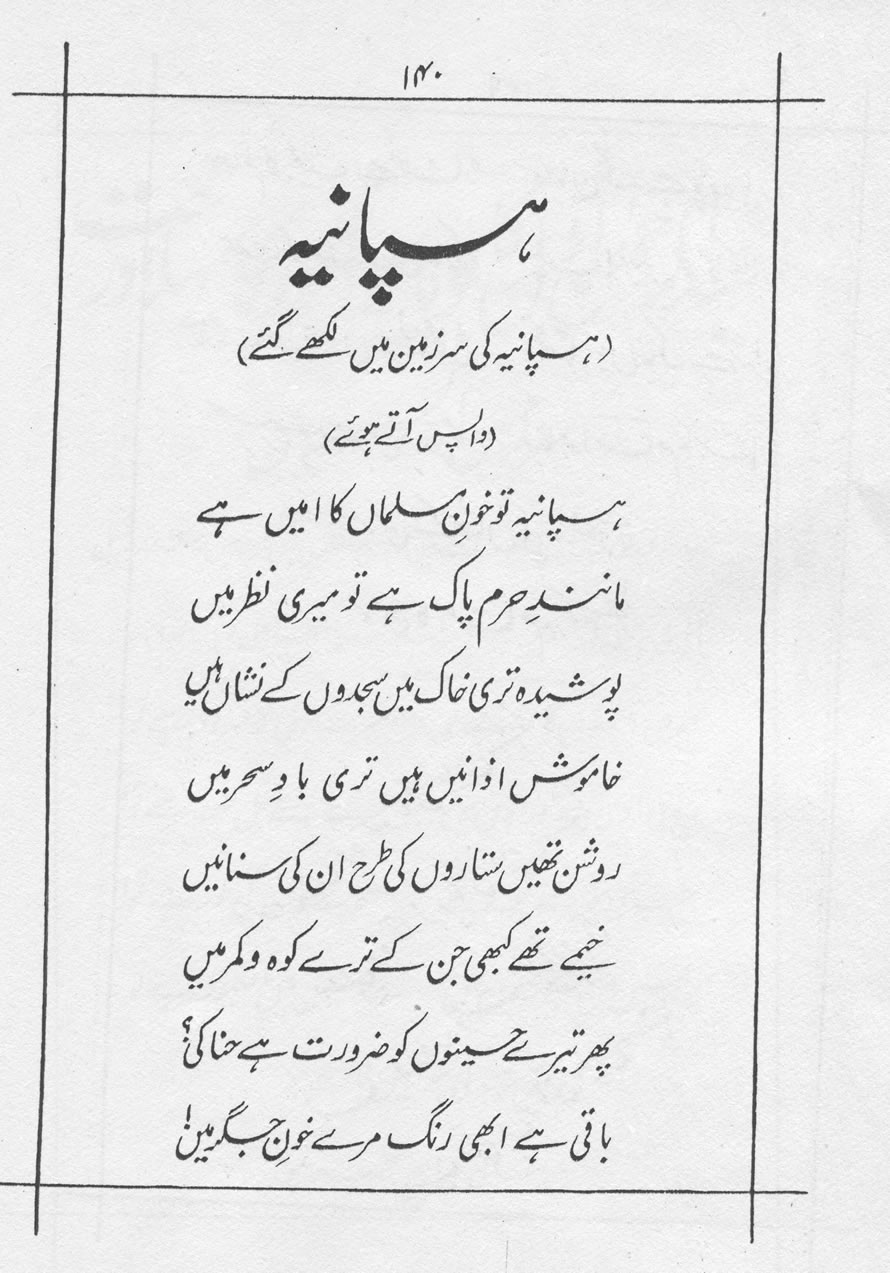 ۱۴۰
ہسپانیہ
(ہسپانیہ کی سرزمین میں لکھے گئے)
(واپس آتے ہوئے)
ہسپانیہ تو خونِ مسلماں کا امیں ہے
مانندِ حرم پاک ہے تو میری نظر میں
پوشیدہ تری خاک میں سجدوں کے نشاں ہیں
خاموش اذانیں ہیں تری بادِ سحر میں
روشن تھیں ستاروں کی طرح ان کی سنانیں
خیمے تھے کبھی جن کے ترے کوہ و کمر میں
پھر تیرے حسینوں کو ضرورت ہے حنا کی؟
باقی ہے ابھی رنگ مرے خونِ جگر میں!